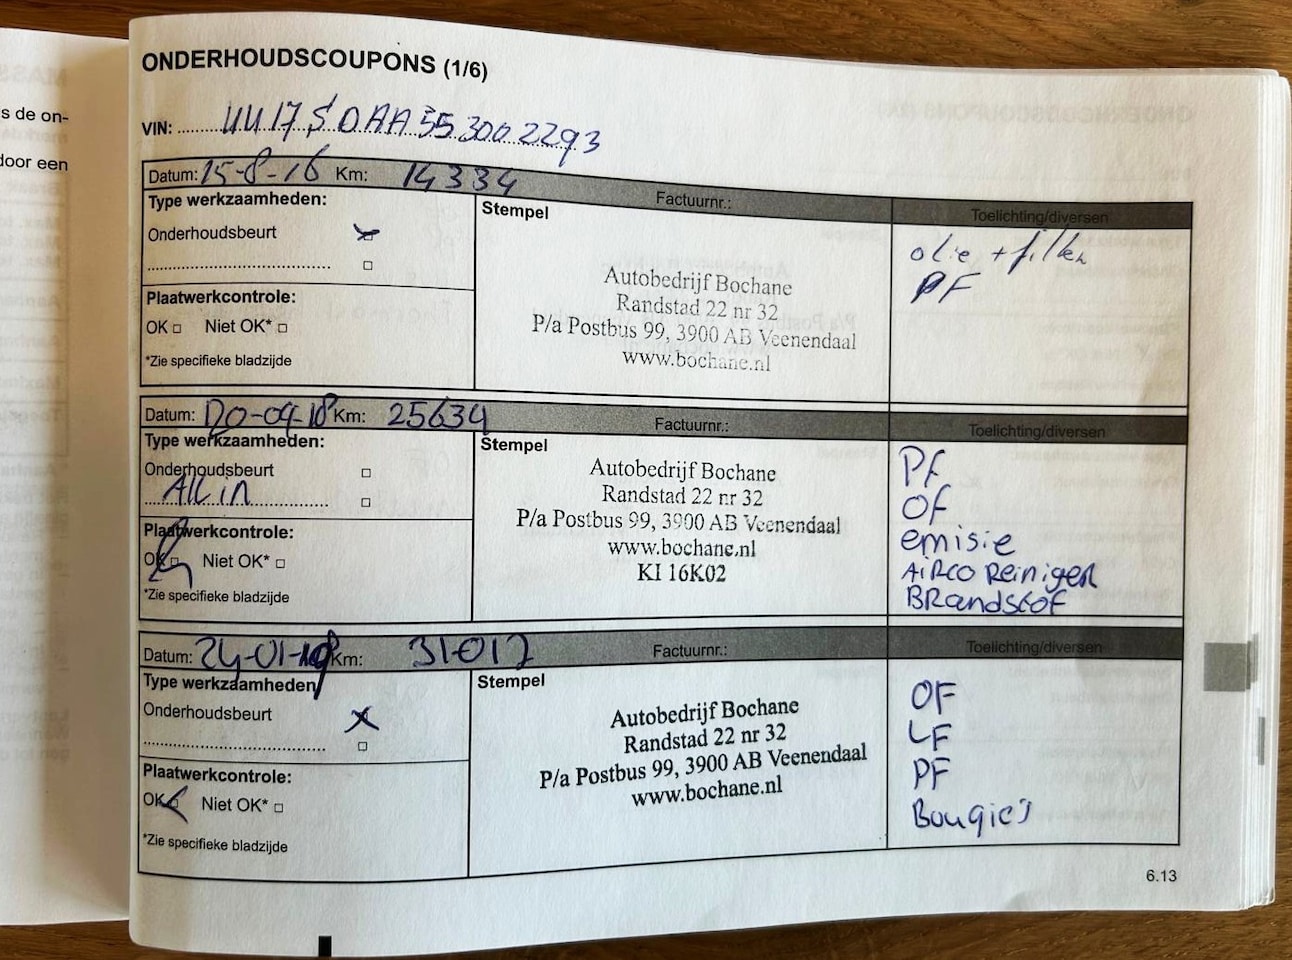 s de on-
door een
ONDERHOUDSCOUPONS (1/6)
VIN: UU17SDAAA553002293
Datum: 15-8-16 Km: 14334 Factuurnr.: Toelichting/diversen
Type werkzaamheden:
Stempel
Onderhoudsbeurt
Plaatwerkcontrole:
OK Niet OK*
*Zie specifieke bladzijde
Autobedrijf Bochane
Randstad 22 nr 32
P/a Postbus 99, 3900 AB Veenendaal
www.bochane.nl
olie + filter
PF
Datum: 20-09-18 Km: 25634 Factuurnr.: Toelichting/diversen
Type werkzaamheden:
Stempel
Onderhoudsbeurt
All in
Plaatwerkcontrole:
OK Niet OK*
*Zie specifieke bladzijde
Autobedrijf Bochane
Randstad 22 nr 32
P/a Postbus 99, 3900 AB Veenendaal
www.bochane.nl
KI 16K02
PF
OF
emisie
AiRCO Reiniger
BRandstof
Datum: 24-01- Km: 31012 Factuurnr.: Toelichting/diversen
Type werkzaamheden
Stempel
Onderhoudsbeurt
Plaatwerkcontrole:
OK Niet OK*
*Zie specifieke bladzijde
Autobedrijf Bochane
Randstad 22 nr 32
P/a Postbus 99, 3900 AB Veenendaal
www.bochane.nl
OF
LF
PF
Bougie's
6.13